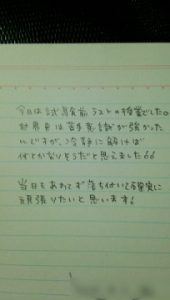 今日は試験前ラストの授業でした。
財表は苦手意識が強かった
んですが、冷静に解けば
何とかなりそうだと思えました
当日もあわてず落ち付いて確実に
頑張りたいと思います!